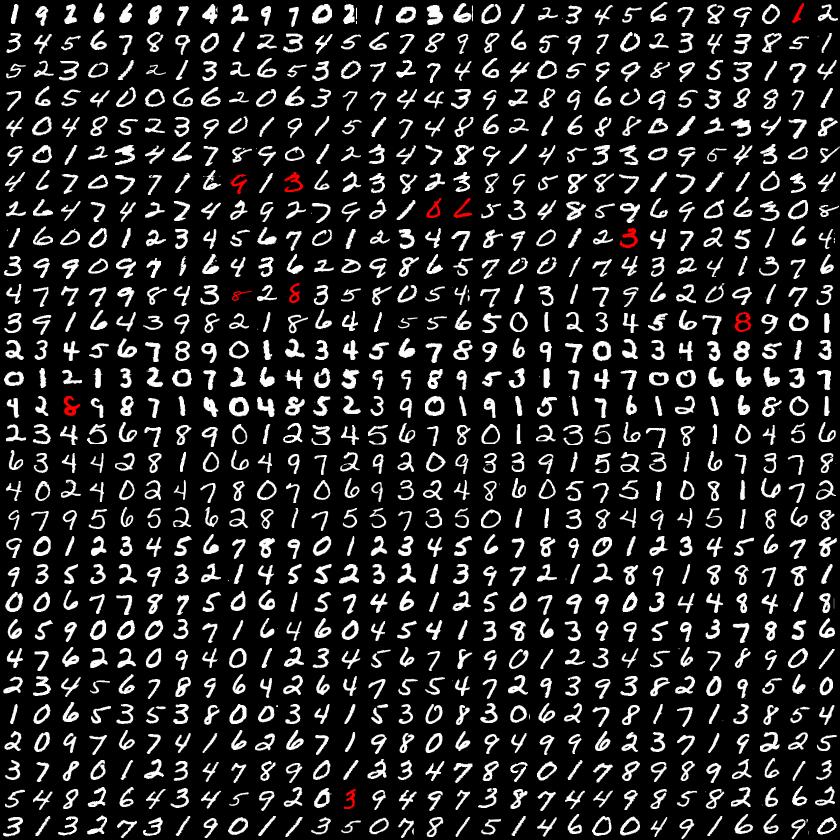 0 9 2 6 6 8 7 4 2 9 7 0 2 1 0 3 6 0 1 2 3 4 5 6 7 8 9 0 1 2
3 4 5 6 7 8 9 0 1 2 3 4 5 6 7 8 9 8 6 5 9 7 0 2 3 4 3 8 5 1
5 2 3 0 1 2 1 3 2 6 5 3 0 7 2 7 4 6 4 0 5 9 9 8 9 5 3 1 7 4
7 6 5 4 0 0 6 6 2 0 6 3 7 7 4 4 3 9 2 8 9 6 0 9 5 3 8 8 7 1
4 0 4 8 5 2 3 9 0 1 9 1 5 1 7 4 8 6 2 1 6 8 8 0 1 2 3 4 7 8
9 0 1 2 3 4 6 7 8 9 0 1 2 3 4 7 8 9 1 4 5 3 3 0 9 5 4 3 0 8
4 6 7 0 7 7 1 6 9 1 3 6 2 3 8 2 3 8 9 5 8 8 7 1 7 1 1 0 3 4
2 6 4 7 4 2 7 4 2 9 2 7 9 2 1 0 6 5 3 4 8 5 9 6 9 0 6 3 0 8
1 6 0 0 1 2 3 4 5 6 7 0 1 2 3 4 7 8 9 0 1 2 3 4 7 2 5 1 6 4
3 9 9 0 9 7 1 6 4 3 6 2 0 9 8 6 5 7 0 0 1 7 4 3 2 4 1 3 7 6
4 7 7 7 9 8 4 3 8 2 8 3 5 8 0 5 4 7 1 3 1 7 9 6 2 0 9 1 7 3
3 9 1 6 4 3 9 8 2 1 8 6 4 1 5 5 6 5 0 1 2 3 4 5 6 7 8 9 0 1
2 3 4 5 6 7 8 9 0 1 2 3 4 5 6 7 8 9 6 9 7 0 2 3 4 3 8 5 1 3
0 1 2 1 3 2 0 7 2 6 4 0 5 9 9 8 9 5 3 1 7 4 7 0 0 6 6 6 3 7
9 2 8 9 8 7 1 4 0 4 8 5 2 3 9 0 1 9 1 5 1 7 6 1 2 1 6 8 0 1
2 3 4 5 6 7 8 9 0 1 2 3 4 5 6 7 8 0 1 2 3 5 6 7 8 1 0 4 5 6
6 3 4 4 2 8 1 0 6 4 9 7 2 9 2 0 9 3 3 9 1 5 2 3 1 6 7 3 7 8
4 0 2 4 0 2 4 7 8 0 7 0 6 9 3 2 4 8 6 0 5 7 5 1 0 8 1 6 7 2
9 7 9 5 6 5 2 6 2 8 1 7 5 5 7 3 5 0 1 1 3 8 4 9 4 5 1 8 6 8
9 0 1 2 3 4 5 6 7 8 9 0 1 2 3 4 5 6 7 8 9 0 1 2 3 4 5 6 7 8
9 3 5 3 2 9 3 2 1 4 5 5 2 3 2 1 3 9 7 2 1 2 8 9 1 8 8 7 8 1
0 0 6 7 7 8 7 5 0 6 1 5 7 4 6 1 2 5 0 7 9 9 0 3 4 4 8 4 1 8
6 5 9 0 0 0 3 7 1 6 4 6 0 4 5 4 1 3 8 6 3 9 9 5 9 3 7 8 5 6
4 7 6 2 2 0 9 4 0 1 2 3 4 5 6 7 8 9 0 1 2 3 4 5 6 7 8 9 0 1
2 3 4 5 6 7 8 9 6 4 2 6 4 7 5 5 4 7 2 9 3 9 3 8 2 0 9 5 6 0
1 0 6 5 3 5 3 8 0 0 3 4 1 5 3 0 8 3 0 6 2 7 8 1 7 1 3 8 5 4
2 0 9 7 6 7 4 1 6 2 6 7 1 9 8 0 6 9 4 9 9 6 2 3 7 1 9 2 2 5
3 7 8 0 1 2 3 4 7 8 9 0 1 2 3 4 7 8 9 0 1 7 8 9 8 9 2 6 1 3
5 4 8 2 6 4 3 4 5 9 2 0 3 9 4 9 7 3 8 7 4 4 9 8 5 8 2 6 6 2
3 1 3 2 7 3 1 9 0 1 1 3 5 0 7 8 1 5 1 4 6 0 0 4 9 1 6 6 9 0